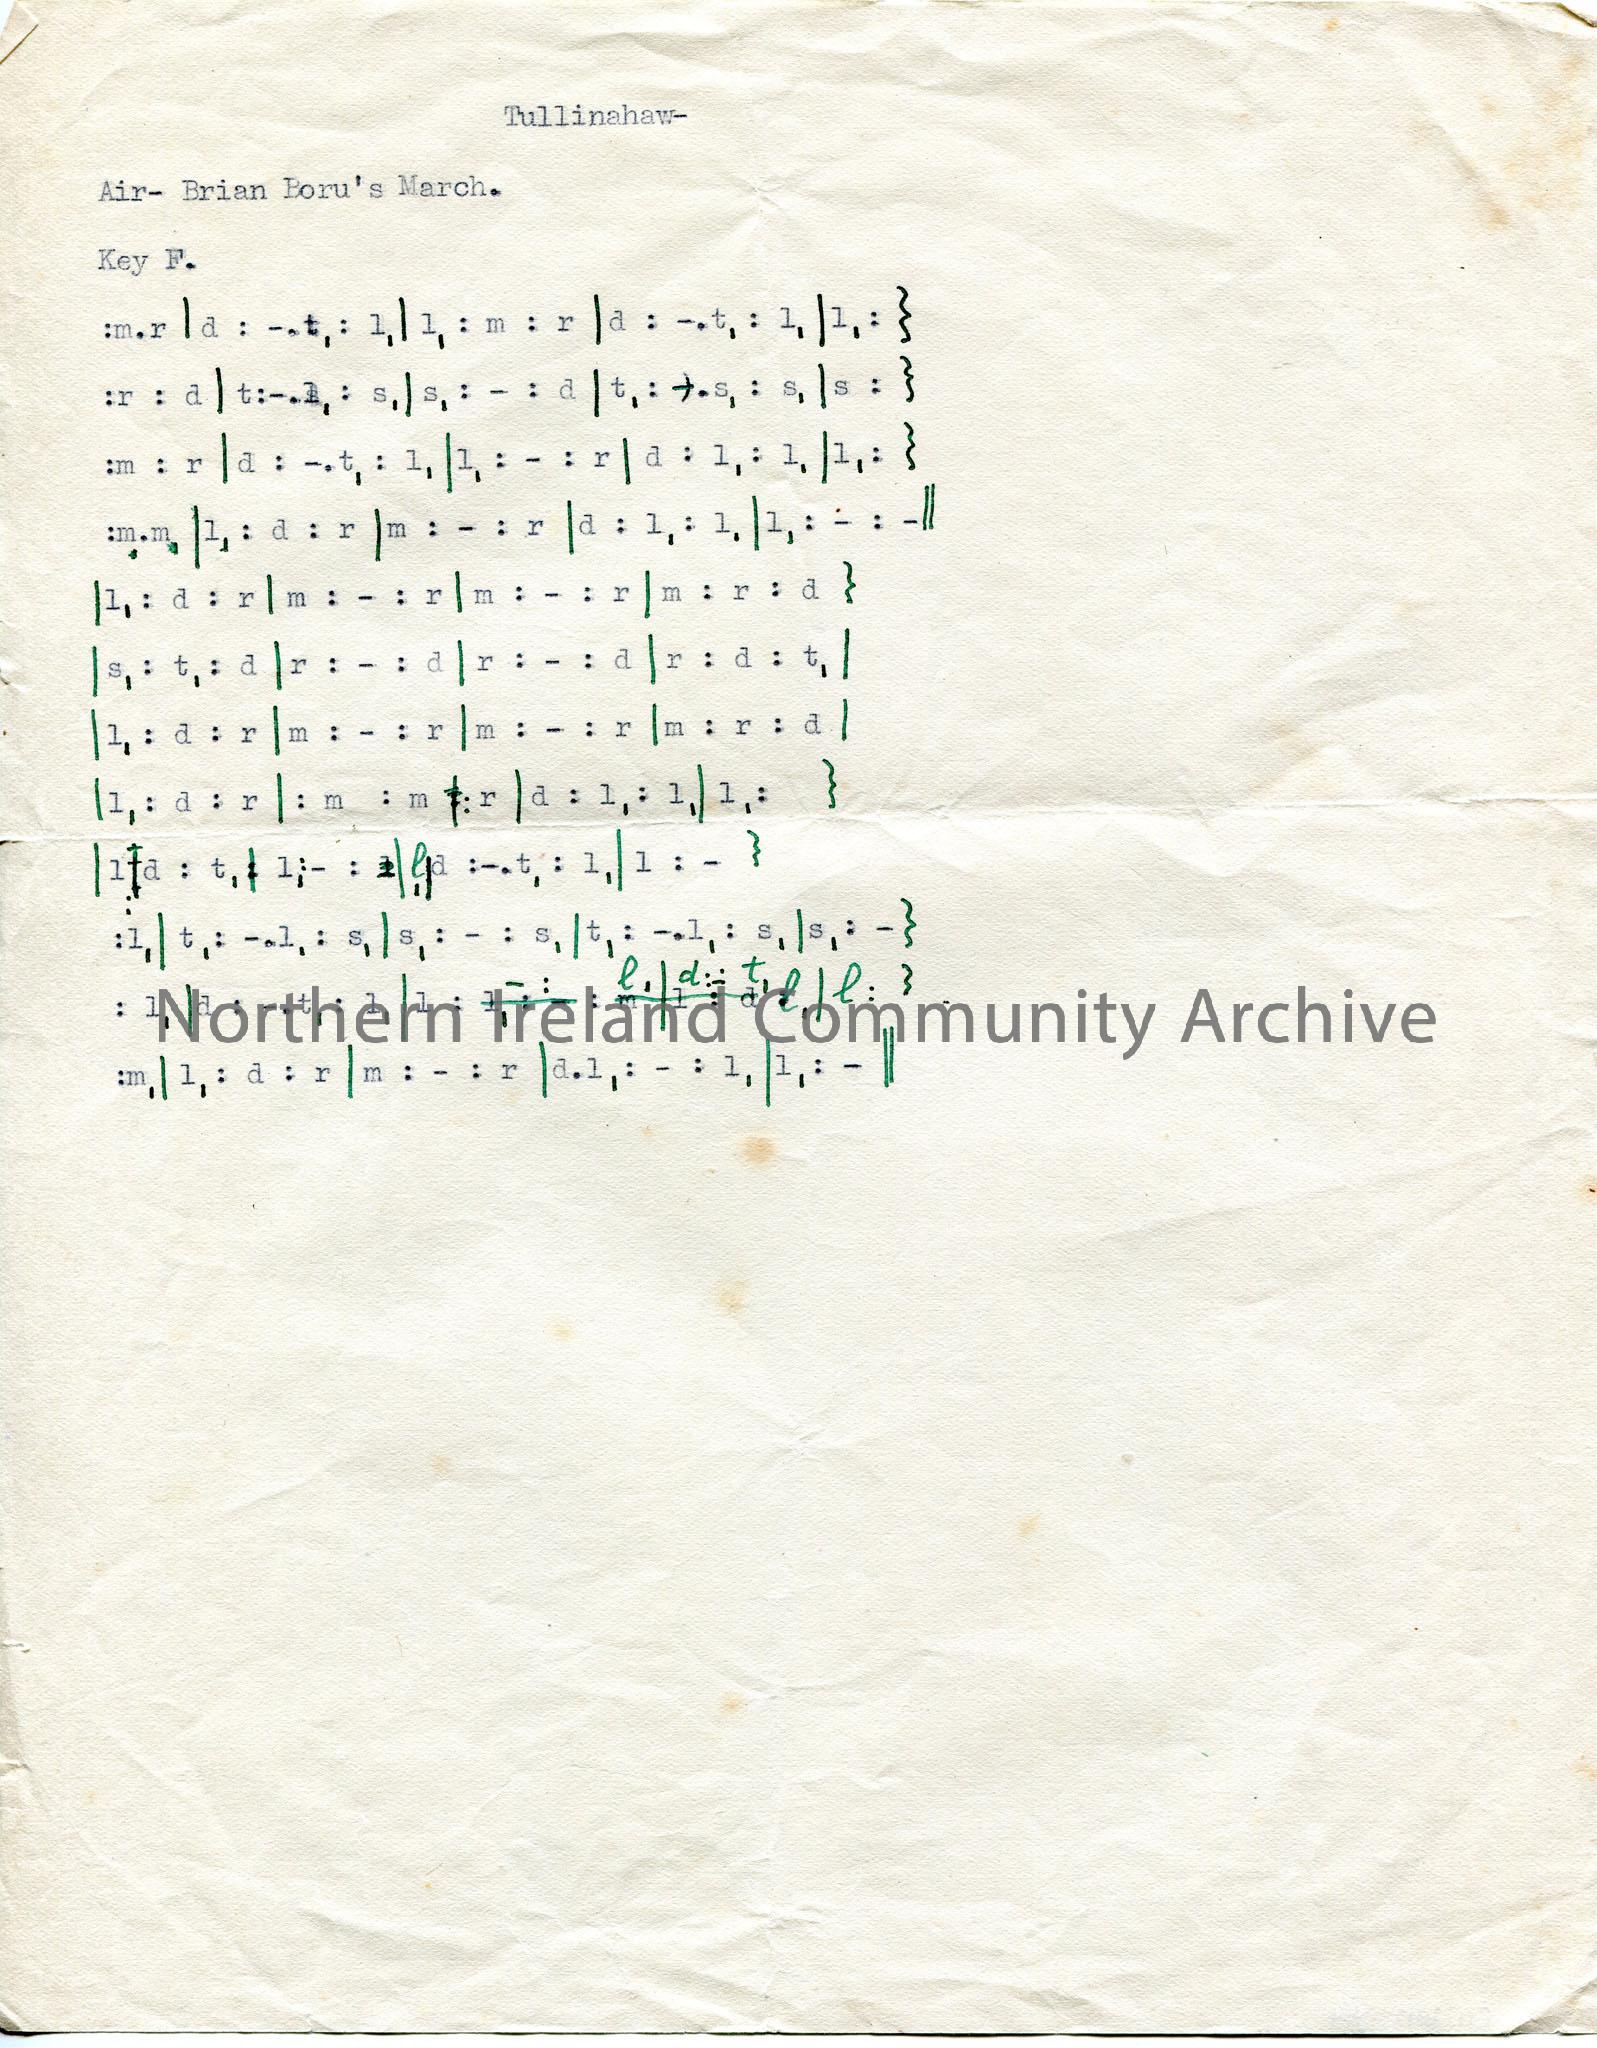 Tullinahaw-
Air- Brian Boru's March.
Key F.
:m.r |d : -.t, : l,|l, : m : r |d : -.t, : l, |l, : }
:r : d |t:-.l, : s,|s, : - : d |t, : -.s, : s, |s : }
:m : r |d : -.t, : l, |l, : - : r| d : l, : l, |l, : }
:m.m, |l, : d : r |m : - : r |d : l, : l, |l, : - : -||
|l, : d : r| m : - : r| m : - : r |m : r : d }
|s, : t, : d |r : - : d |r : - : d |r : d : t, |
|l, : d : r |m : - : r |m : - : r |m : r : d |
|l, : d : r |: m : m : r |d : l, : l,| l, : }
|l |d : t, : l,:- : |l,|d :-.t, : l, |l : - }
:l,| t, : -.l, : s, |s, : - : s, |t, : -.l, : s, |s, : -}
- : l, |d :- t,
: l,|d : -.t, : l |l : l, : - : m |l : d l,| l : }
:m,| l, : d : r |m : - : r |d.l, : - : l, |l, : - ||
Northern Ireland Community Archive